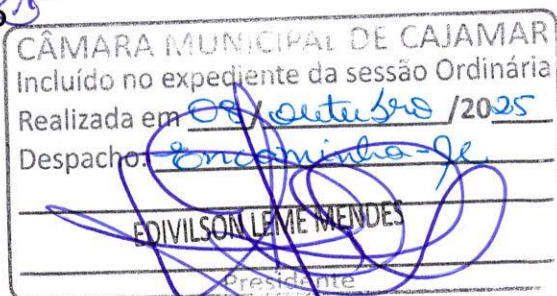 CÂMARA MUNICIPAL DE CAJAMAR
Incluído no expediente da sessão Ordinária
Realizada em 08/ outubro /2025
Despacho: Encaminha-se
EDIVILSON LEME MENDES
Presidente